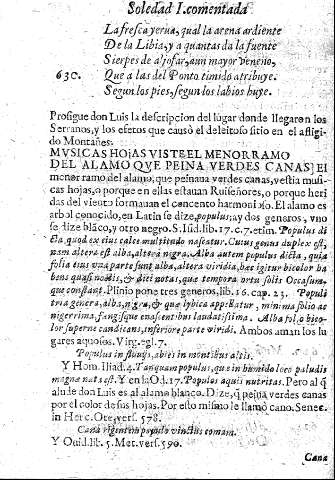 Soledad I. comentada
La fresca yerua, qual la arena ardiente
De la Libia, y a quantas da la fuente
Sierpes de aljofar, aun mayor veneno,
630. Que a las del Ponto timido atribuye.
Segun los pies, segun los labios huye.
Prosigue don Luis la descripcion del lugar donde llegaron los
Serranos, y los efetos que causò el deleitoso sitio en el afligi
do Montañes.
MVSICAS HOJAS VISTE EL MENOR RAMO
DEL ALAMO QVE PEINA VERDES CANAS] El
menor ramo del alamo, que peinaua verdes canas, vestia musi
cas hojas, o porque en ellas estauan Ruiseñores, o porque heri
das del viento formauan el concento harmonioso. El alamo es
arbol conocido, en Latin se dize, populus; ay dos generos, vno
se dize blãco, y otro negro. S. Isid. lib. 17. c. 7. etim. Populus di
cta, quod ex eius calce multitudo nascatur. Cuius genus duplex est,
nam altera est alba, altera nigra. Alba autem populus dicta, quia
folia eius vna parte sunt alba, altera viridia, hæc igitur bicolor ha
bens quasi noctis, & diei notas, que tempora ortu solis Occasum
que constant. Plinio pone tres generos, lib. 16. cap. 23. Populi
tria genera, alba, nigra, & que lybica appellatur, minima folio ac
nigerrima, fangisque enascentibus laudatissima. Alba folio bico
lor superne candicans, inferiore parte viridi. Ambos aman los lu
gares aquosos. Virg. egl. 7.
Populus in fluuijs, abies in montibus altis.
Y Hom. Iliad. 4. Tanquam populus, que in humido loco paludis
magnæ nata est. Y en la Od. 17. Populos aquis nutritas. Pero al q̃
alude don Luis es al alamo blanco. Dize, q̃ peina verdes canas
por el color de sus hojas. Por esto mismo le llamò cano. Senec.
in Herc. Ote. vers. 578.
Cana rigentem populo vinctus comam.
Y Ouid. lib. 5. Met. vers. 590.
Cana